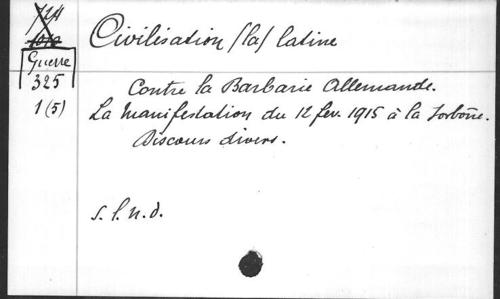 Civilisation (la) latine
Guerre
325
1 (5)
Contre la Barbarie Allemande.
La Manifestation du 12 fev. 1915 à la Sorbone.
Discours divers.
s. l. n. d.